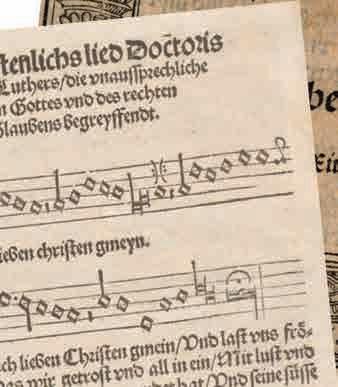 stenlichs lied Doctoris
Luthers/die vnaussprechliche
n Gottes vnd des rechten
Glaubens begreyffendt.
ieben christen gmeyn.
ch lieben Christen gmein/Vnd last vns frö-
as wir getrost vnd all in ein/Mit lust vnd
hat/Vnd seine süsse
be